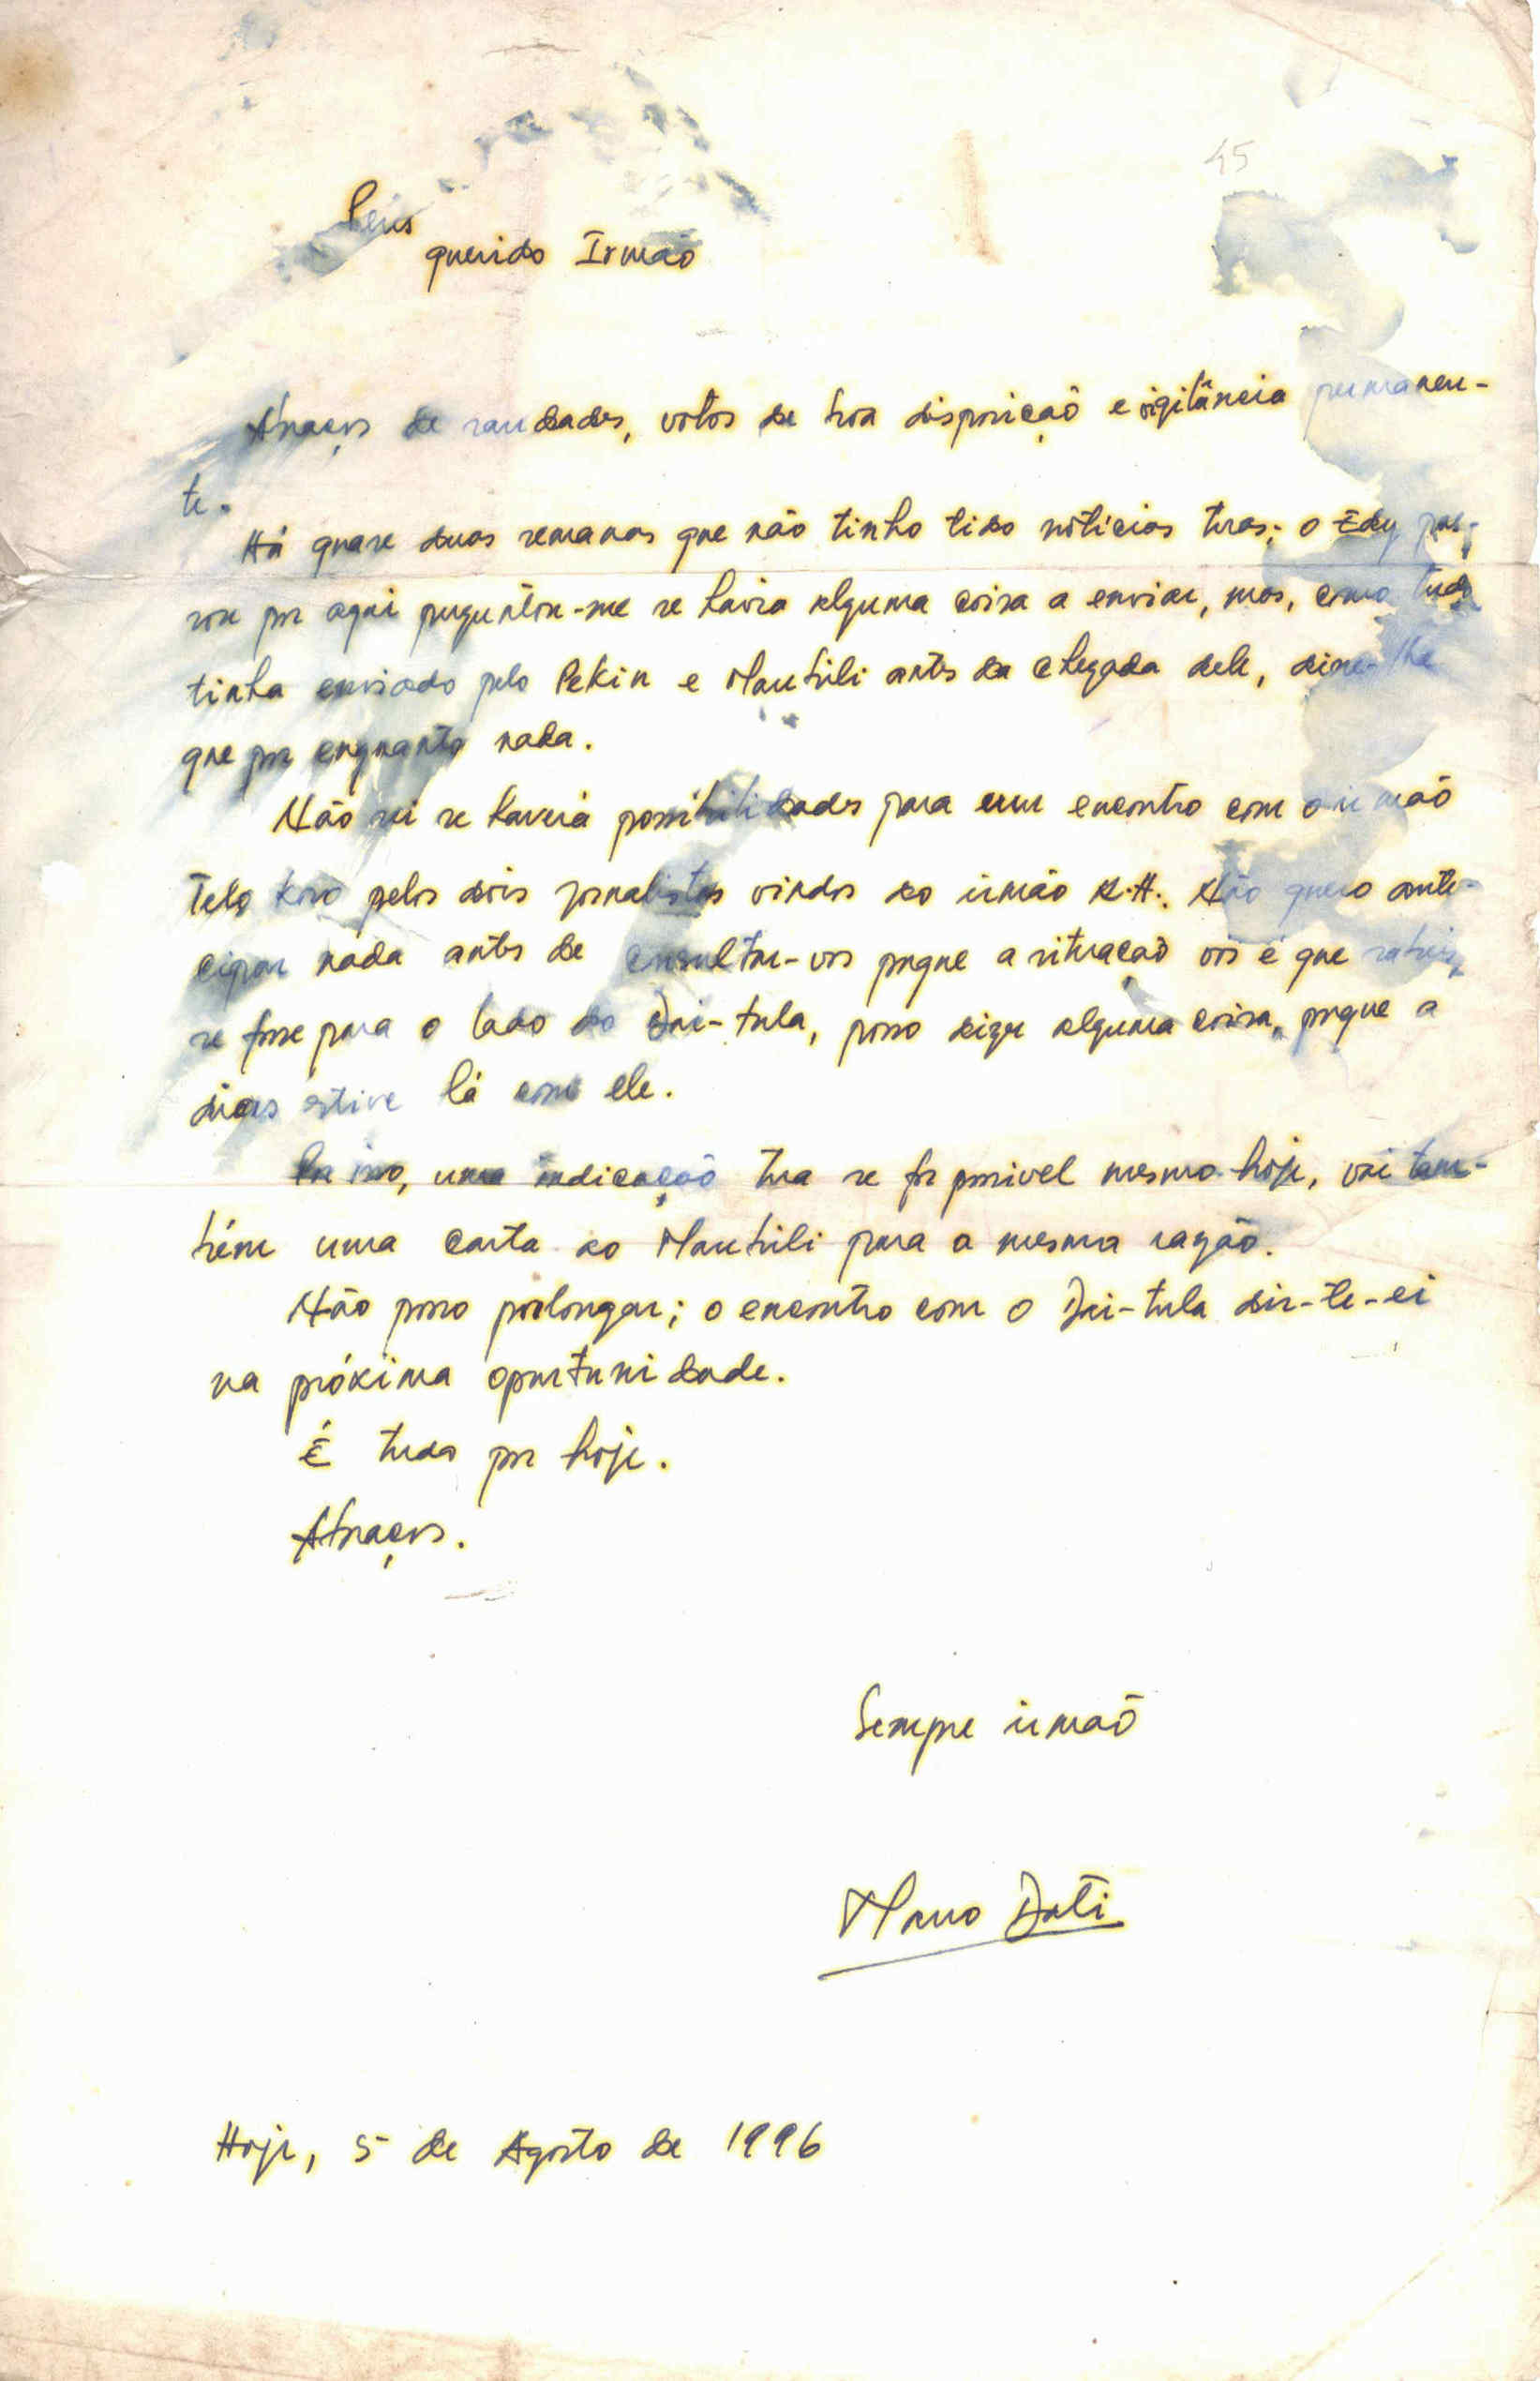 45
querido Irmão
Abraços de saudades, votos de boa disposição e vigilância permanen-
te.
Há quase duas semanas que não tinha tido notícias tuas; o Edy pas-
sou por aqui perguntou-me se havia alguma coisa a enviar, mas, como tudo
tinha enviado pelo Pekin e Maubili antes da chegada dele, disse-lhe
que por enquanto nada.
Não sei se haverá possibilidades para um encontro com o irmão
pelos dois jornalistas vindos do irmão K.H.. Não quero ante-
cipar nada antes de consultar-vos porque a situação vós é que sabeis,
se fosse para o lado do Dai-tula, posso dizer alguma coisa, porque a
dias estive lá com ele.
Por isso, uma indicação tua se for possivel mesmo hoje, vai tam-
bém uma carta ao Maubili para a mesma razão.
Não posso prolongar; o encontro com o Dai-tula dir-te-ei
na próxima oportunidade.
É tudo por hoje.
Abraços.
Sempre irmão
Mauo Dati
Hoje, 5 de Agosto de 1996